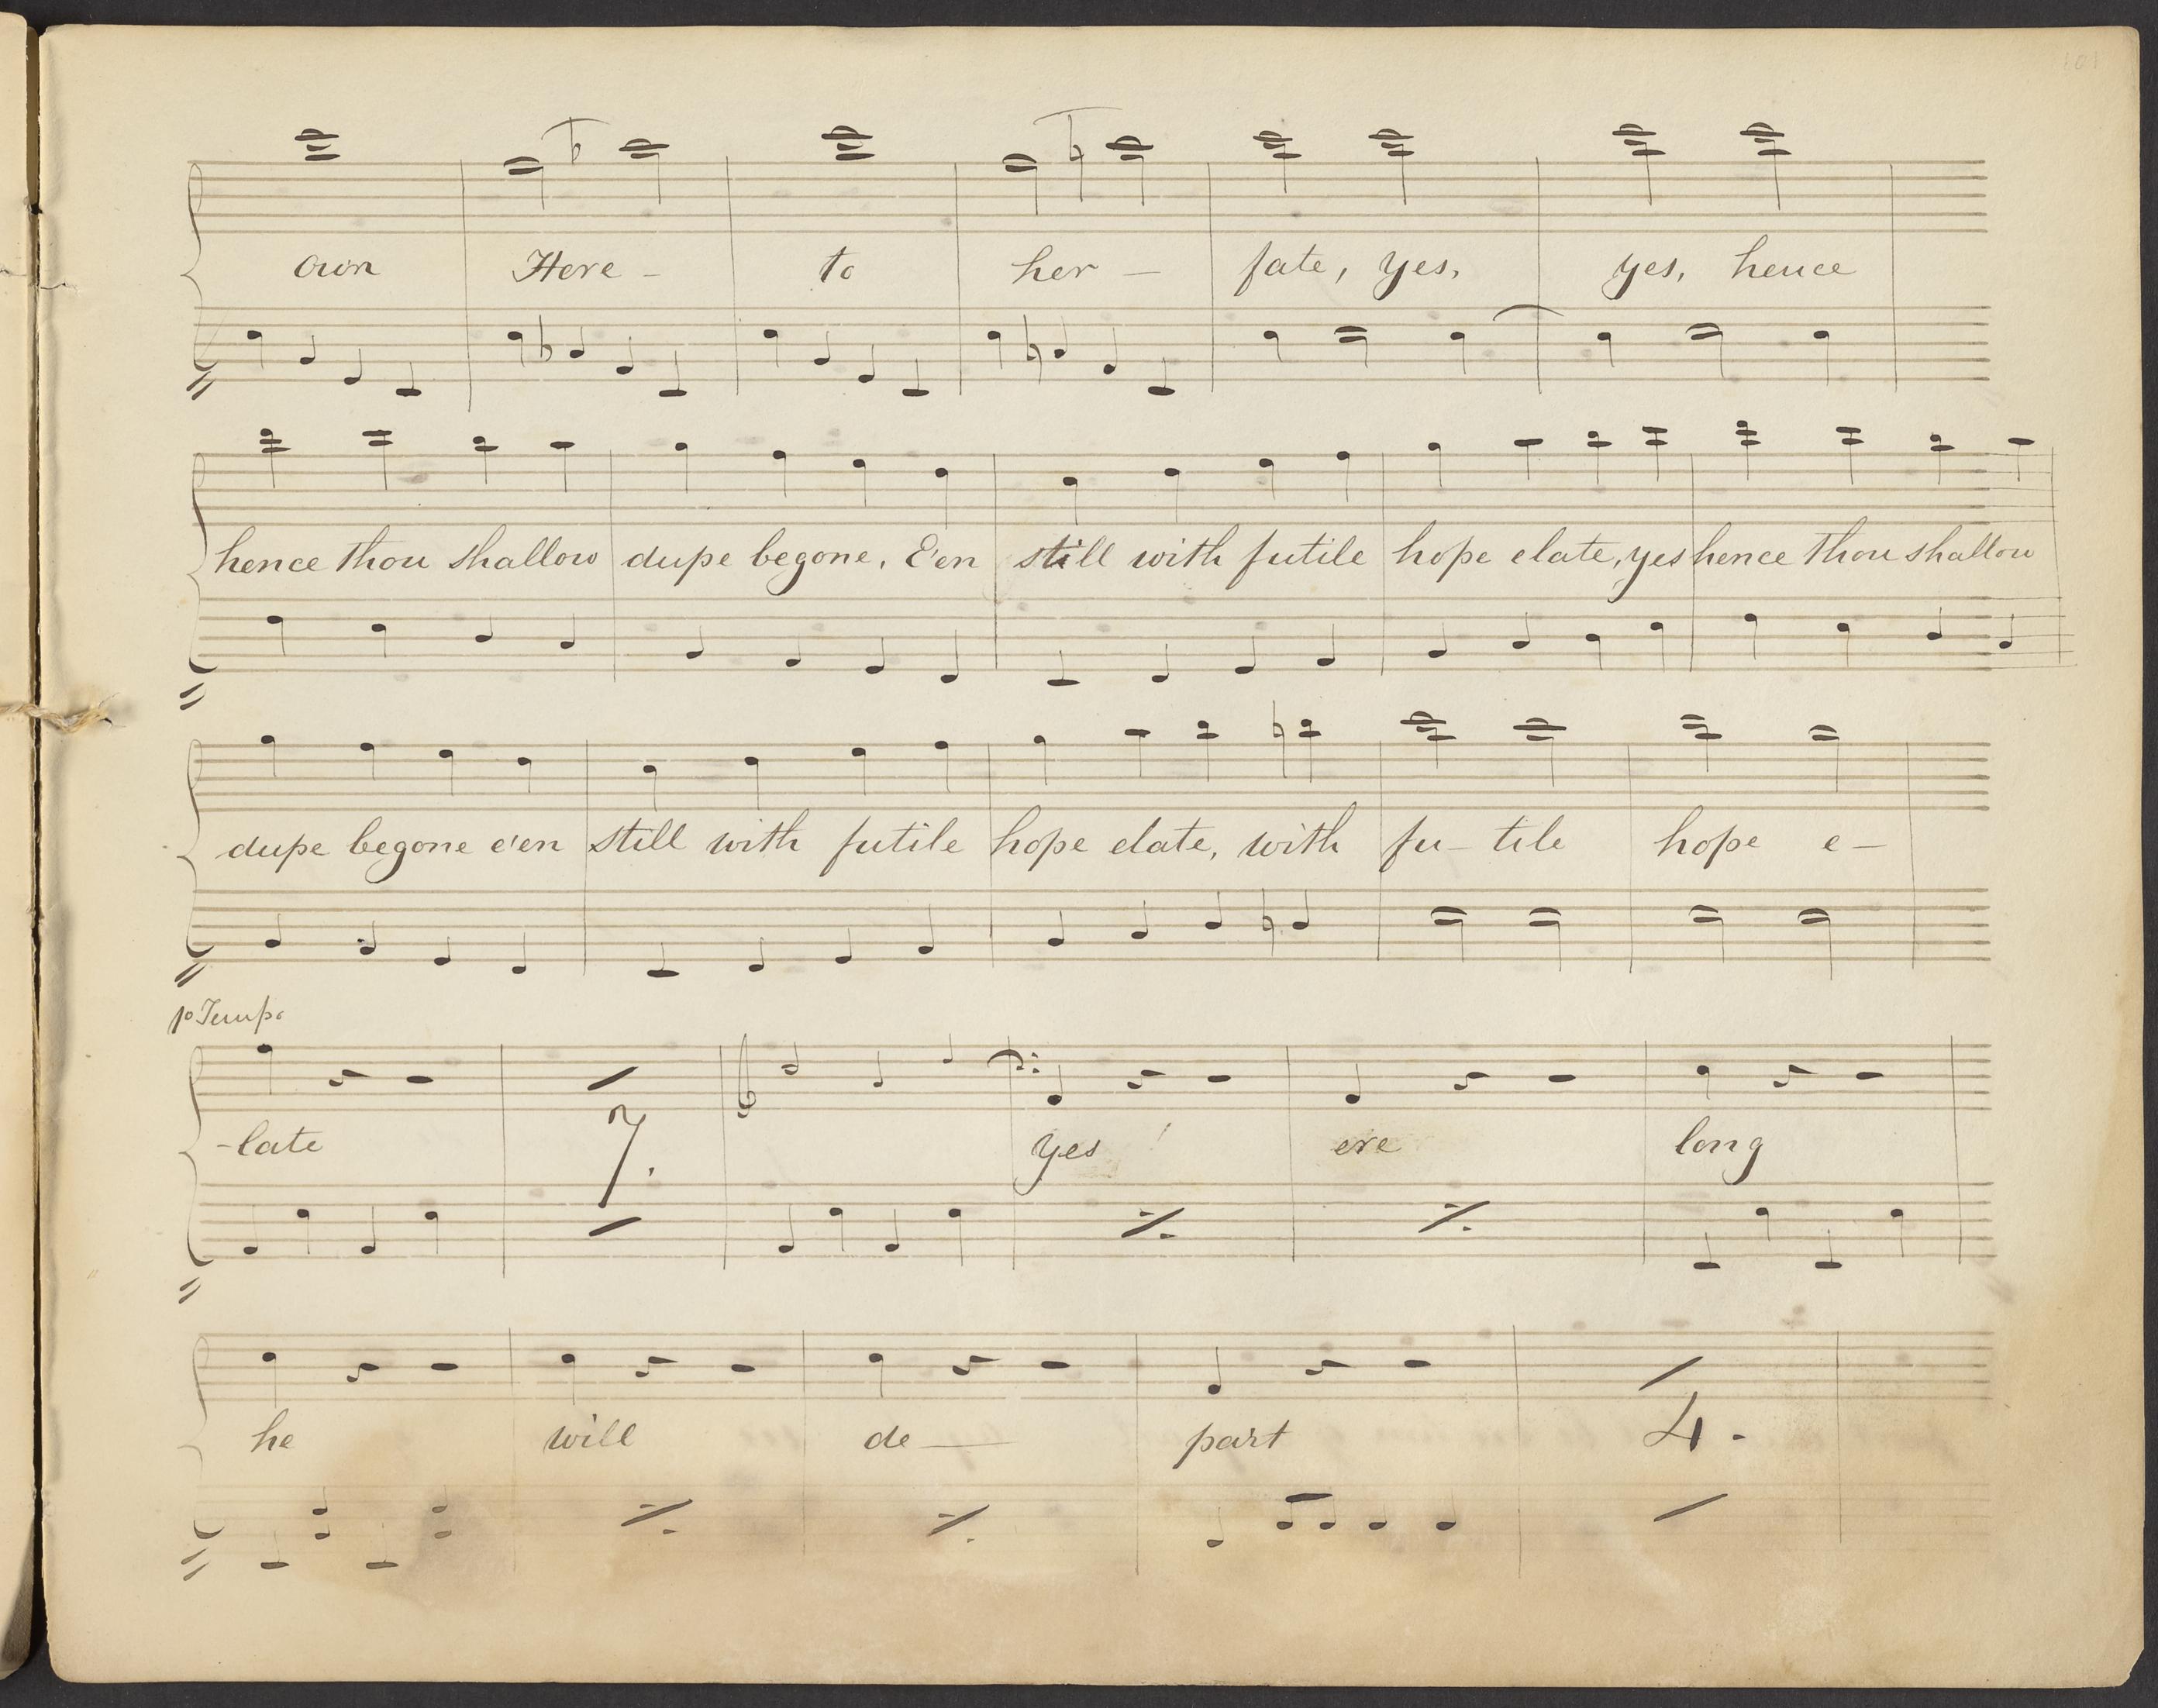 101
own Here - to her - fate, yes, yes, hence
hence thou shallow dupe begone, E'en still with futile hope elate, yes hence thou shallow
dupe begone e'en still with futile hope elate, with fu- tile hope e-
1º Tempo
-late 7. yes ! ere long
he will de- part 4.